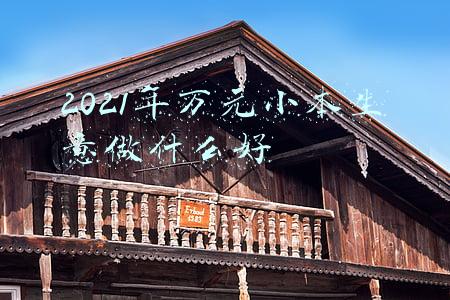 2021年万元小本生
意做什么好
Erbaut
1383